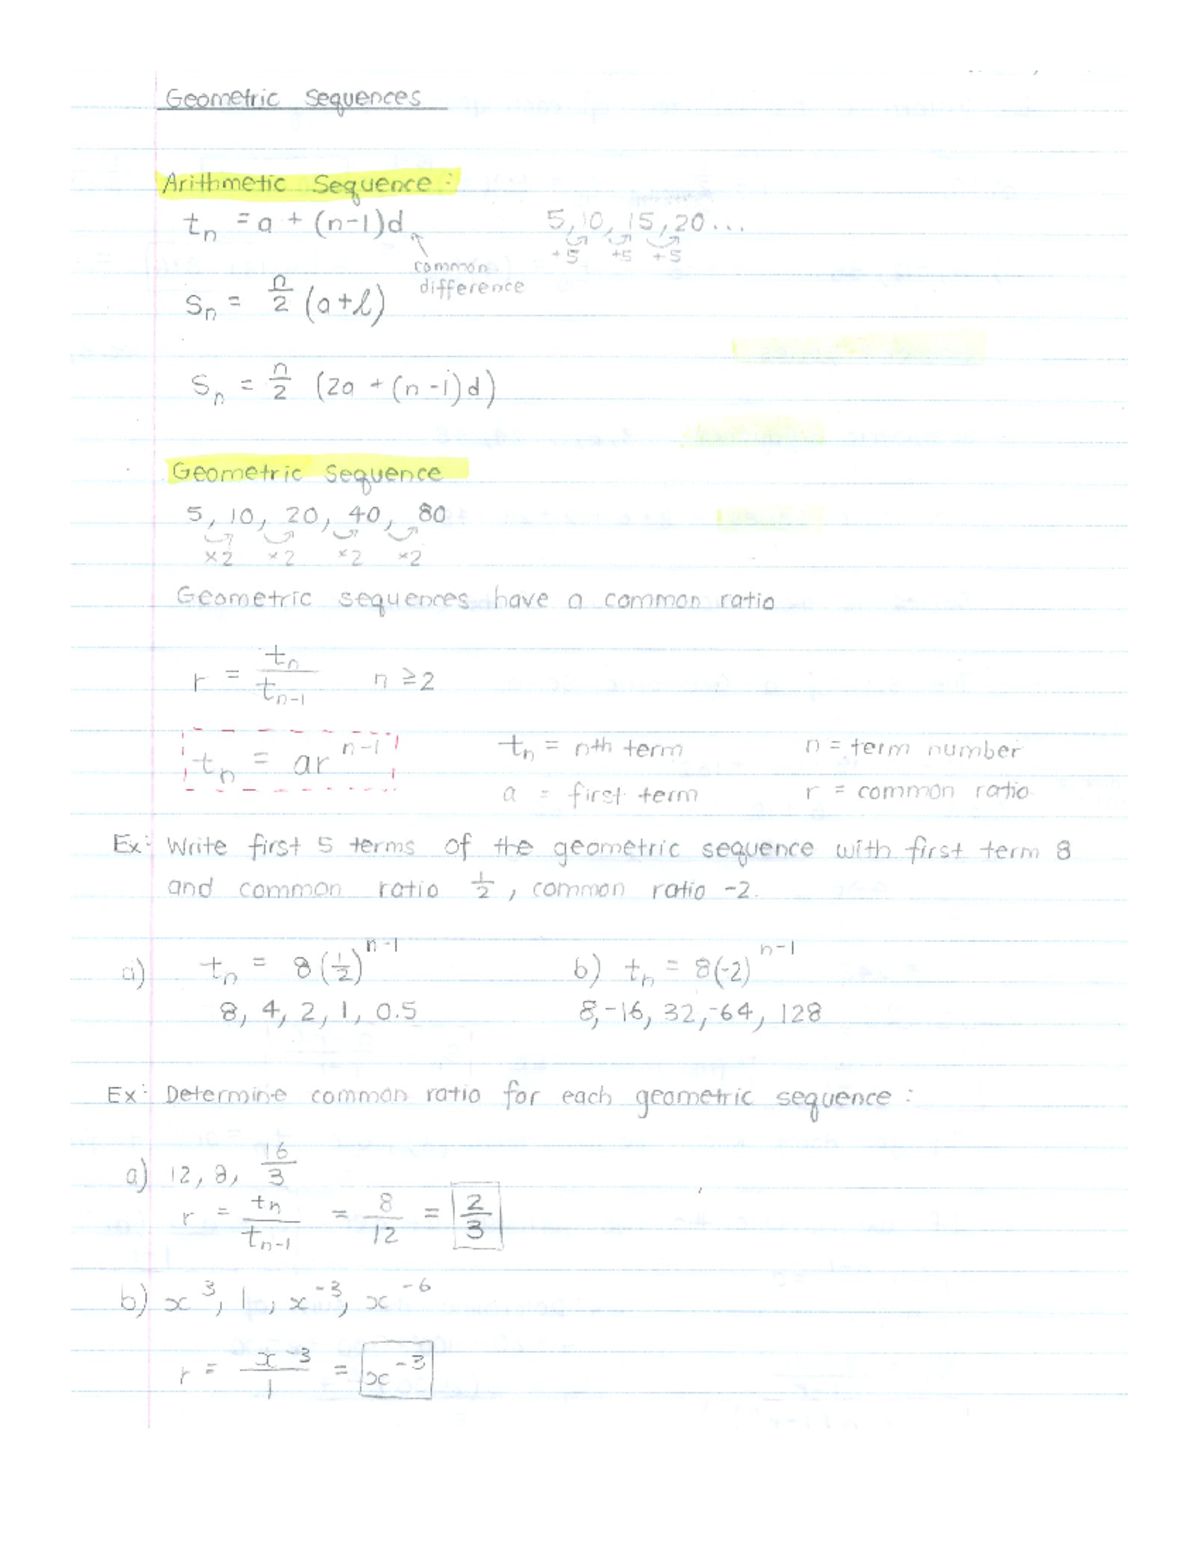 Geometric Sequences
Arithmetic Sequence:
tn = a + (n-1)d 5, 10, 15, 20...
+5 +5 +5
common
difference
Sn = n/2 (a+l)
Sn = n/2 (2a + (n-1)d)
Geometric Sequence
5, 10, 20, 40, 80
×2 ×2 ×2 ×2
Geometric sequences have a common ratio
r = tn/tn-1 n ≥ 2
tn = ar^n-1 tn = nth term n = term number
a = first term r = common ratio
Ex: Write first 5 terms of the geometric sequence with first term 8
and common ratio 1/2, common ratio -2.
a) tn = 8(1/2)^n-1 b) tn = 8(-2)^n-1
8, 4, 2, 1, 0.5 8, -16, 32, -64, 128
Ex: Determine common ratio for each geometric sequence:
a) 12, 8, 16/3
r = tn/tn-1 = 8/12 = 2/3
b) x^3, 1, x^-3, x^-6
r = x^-3/1 = x^-3